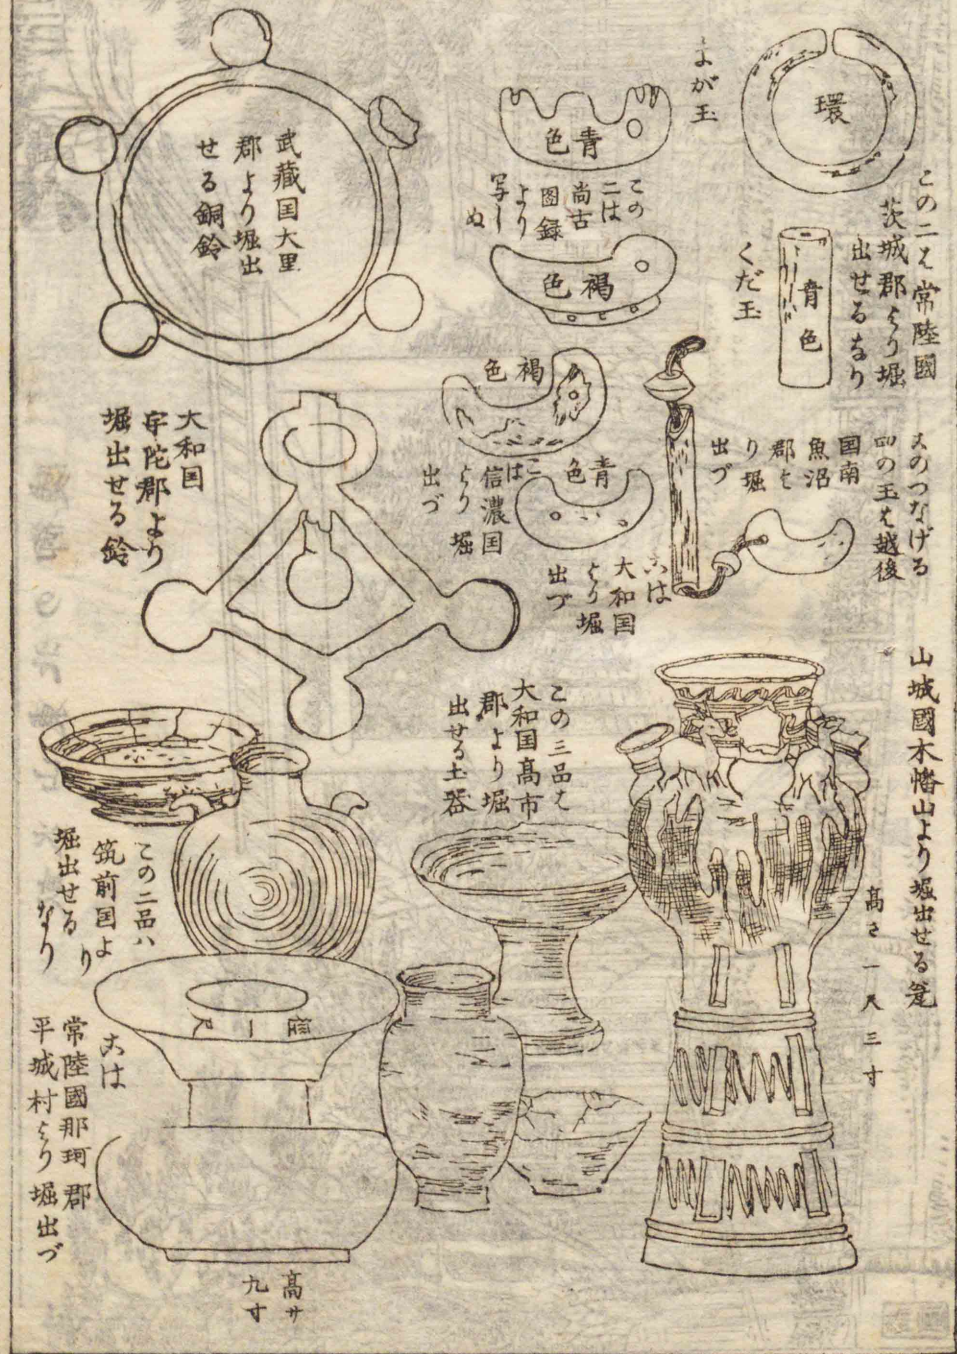 環
この二は常陸國
茨城郡より堀
出せるなり
青色
くだ玉
まが玉
青色
この
二は
尚古
圖録
より
写し
ぬ
褐色
武蔵国大里
郡より堀出
せる銅鈴
褐色
こは
信濃国
より堀
出づ
青色
こは
大和国
より堀
出づ
このつなげる
四の玉は越後
国南
魚沼
郡よ
り堀
出づ
大和国
宇陀郡より
堀出せる鈴
山城國木幡山より堀出せる瓮
高さ一尺三寸
この三品は
大和国高市
郡より堀
出せる土器
この二品ハ
筑前国よ
り
堀出せる
なり
こは
常陸國那珂郡
平城村より堀出づ
高サ
九寸